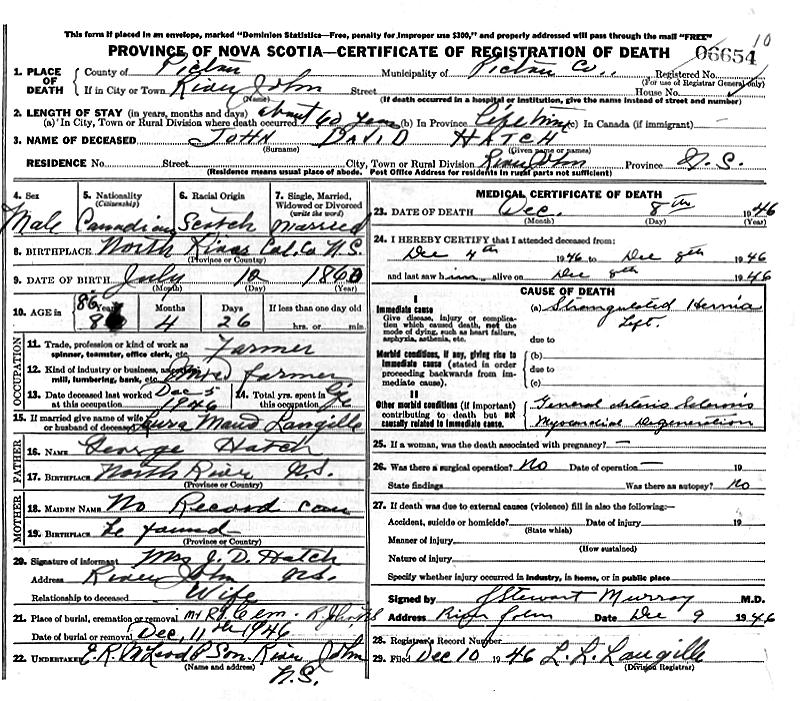 This form if placed in an envelope, marked "Dominion Statistics—Free, penalty for improper use $300," and properly addressed will pass through the mail "FREE"
10
PROVINCE OF NOVA SCOTIA—CERTIFICATE OF REGISTRATION OF DEATH
06654
1. PLACE OF DEATH
County of Pictou Municipality of Pictou Co. Registered No.
(For use of Registrar General only)
If in City or Town River John Street House No.
(Name) (If death occurred in a hospital or institution, give the name instead of street and number)
2. LENGTH OF STAY (in years, months and days)
(a) In City, Town or Rural Division where death occurred about 60 years (b) In Province Lifetime (c) In Canada (if immigrant) —
3. NAME OF DECEASED JOHN DAVID HATCH
(Surname) (Given name or names)
RESIDENCE No. Street City, Town or Rural Division River John Province N.S.
(Residence means usual place of abode. Post Office Address for residents in rural parts not sufficient)
4. Sex
Male
5. Nationality
(Citizenship)
Canadian
6. Racial Origin
Scotch
7. Single, Married, Widowed or Divorced
(write the word)
Married
8. BIRTHPLACE North River Col. Co. N.S.
(Province or Country)
9. DATE OF BIRTH July 12 1860
(Month) (Day) (Year)
10. AGE in
86 Years
Months
4
Days
26
If less than one day old
hrs. or min.
OCCUPATION
11. Trade, profession or kind of work as spinner, teamster, office clerk, etc. Farmer
12. Kind of industry or business, as cotton mill, lumbering, bank, etc. Mixed farmer
13. Date deceased last worked at this occupation Dec-5 1946
14. Total yrs. spent in this occupation Life
15. If married give name of wife or husband of deceased Laura Maud Langille
FATHER
16. Name George Hatch
17. Birthplace North River N.S.
(Province or Country)
MOTHER
18. Maiden Name No Record can
19. Birthplace be found
(Province or Country)
20. Signature of informant Mrs J. D. Hatch
Address River John N.S.
Relationship to deceased Wife
21. Place of burial, cremation or removal Cem. R. John NS
Date of burial or removal Dec. 11th 1946
22. Undertaker E. R. McLeod & Son. River John
(Name and address) N.S.
MEDICAL CERTIFICATE OF DEATH
23. DATE OF DEATH Dec. 8th 1946
(Month) (Day) (Year)
24. I HEREBY CERTIFY that I attended deceased from:
Dec 4th 1946 to Dec 8th 1946
and last saw him alive on Dec 8th 1946
CAUSE OF DEATH
I
Immediate cause
Give disease, injury or complication which caused death, not the mode of dying, such as heart failure, asphyxia, asthenia, etc.
(a) Strangulated Hernia
Left.
due to
Morbid conditions, if any, giving rise to immediate cause (stated in order proceeding backwards from immediate cause).
(b)
due to
(c)
II
Other morbid conditions (if important) contributing to death but not causally related to immediate cause.
General Arterio Sclerosis
Myocardial Degeneration
25. If a woman, was the death associated with pregnancy? —
26. Was there a surgical operation? No Date of operation — 19
State findings Was there an autopsy? No
27. If death was due to external causes (violence) fill in also the following:—
Accident, suicide or homicide? Date of injury 19
(State which)
Manner of injury
(How sustained)
Nature of injury
Specify whether injury occurred in industry, in home, or in public place
Signed by J Stewart Murray M.D.
Address River John Date Dec 9 1946
28. Registrar's Record Number
29. Filed Dec 10 1946 L. L. Langille
(Division Registrar)